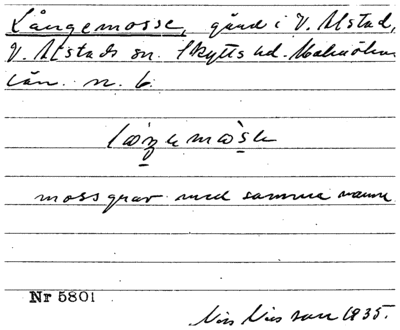 Långemosse, gård i V. Alstad,
V. Alstads sn. Skytts hd. Malmöhus
län. n. 6.
mossgrav med samma namn.
Nr 5801
Nils Nilsson 1935.